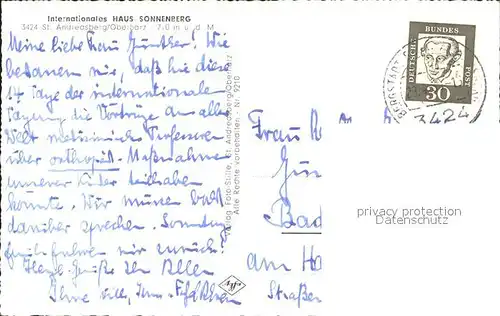 Internationales HAUS SONNENBERG
3424 St. Andreasberg/Oberharz 7 0 m u d M
Meine liebe Frau Günther! Wie
bedauern wir, daß Sie diese
14 Tage der internationale
Tagung die Vorträge aus aller
Welt medizinische Professoren
über orthopäd. Maßnahmen
unserer Kinder teilhaben
konnte. Wir müssen bald
darüber sprechen. Sonntag
früh fahren wir zurück!
Herzl. Grüße Ihnen Allen
Ihre
Verlag Foto-Stille, St. Andreasberg/Oberharz
Alle Rechte vorbehalten Nr. 9210
Agfa
Frau
Gün
Bad
am Ho
Straße
DEUTSCHE
BUNDES
POST
30
BERGSTADT
3424
privacy protection
Datenschutz